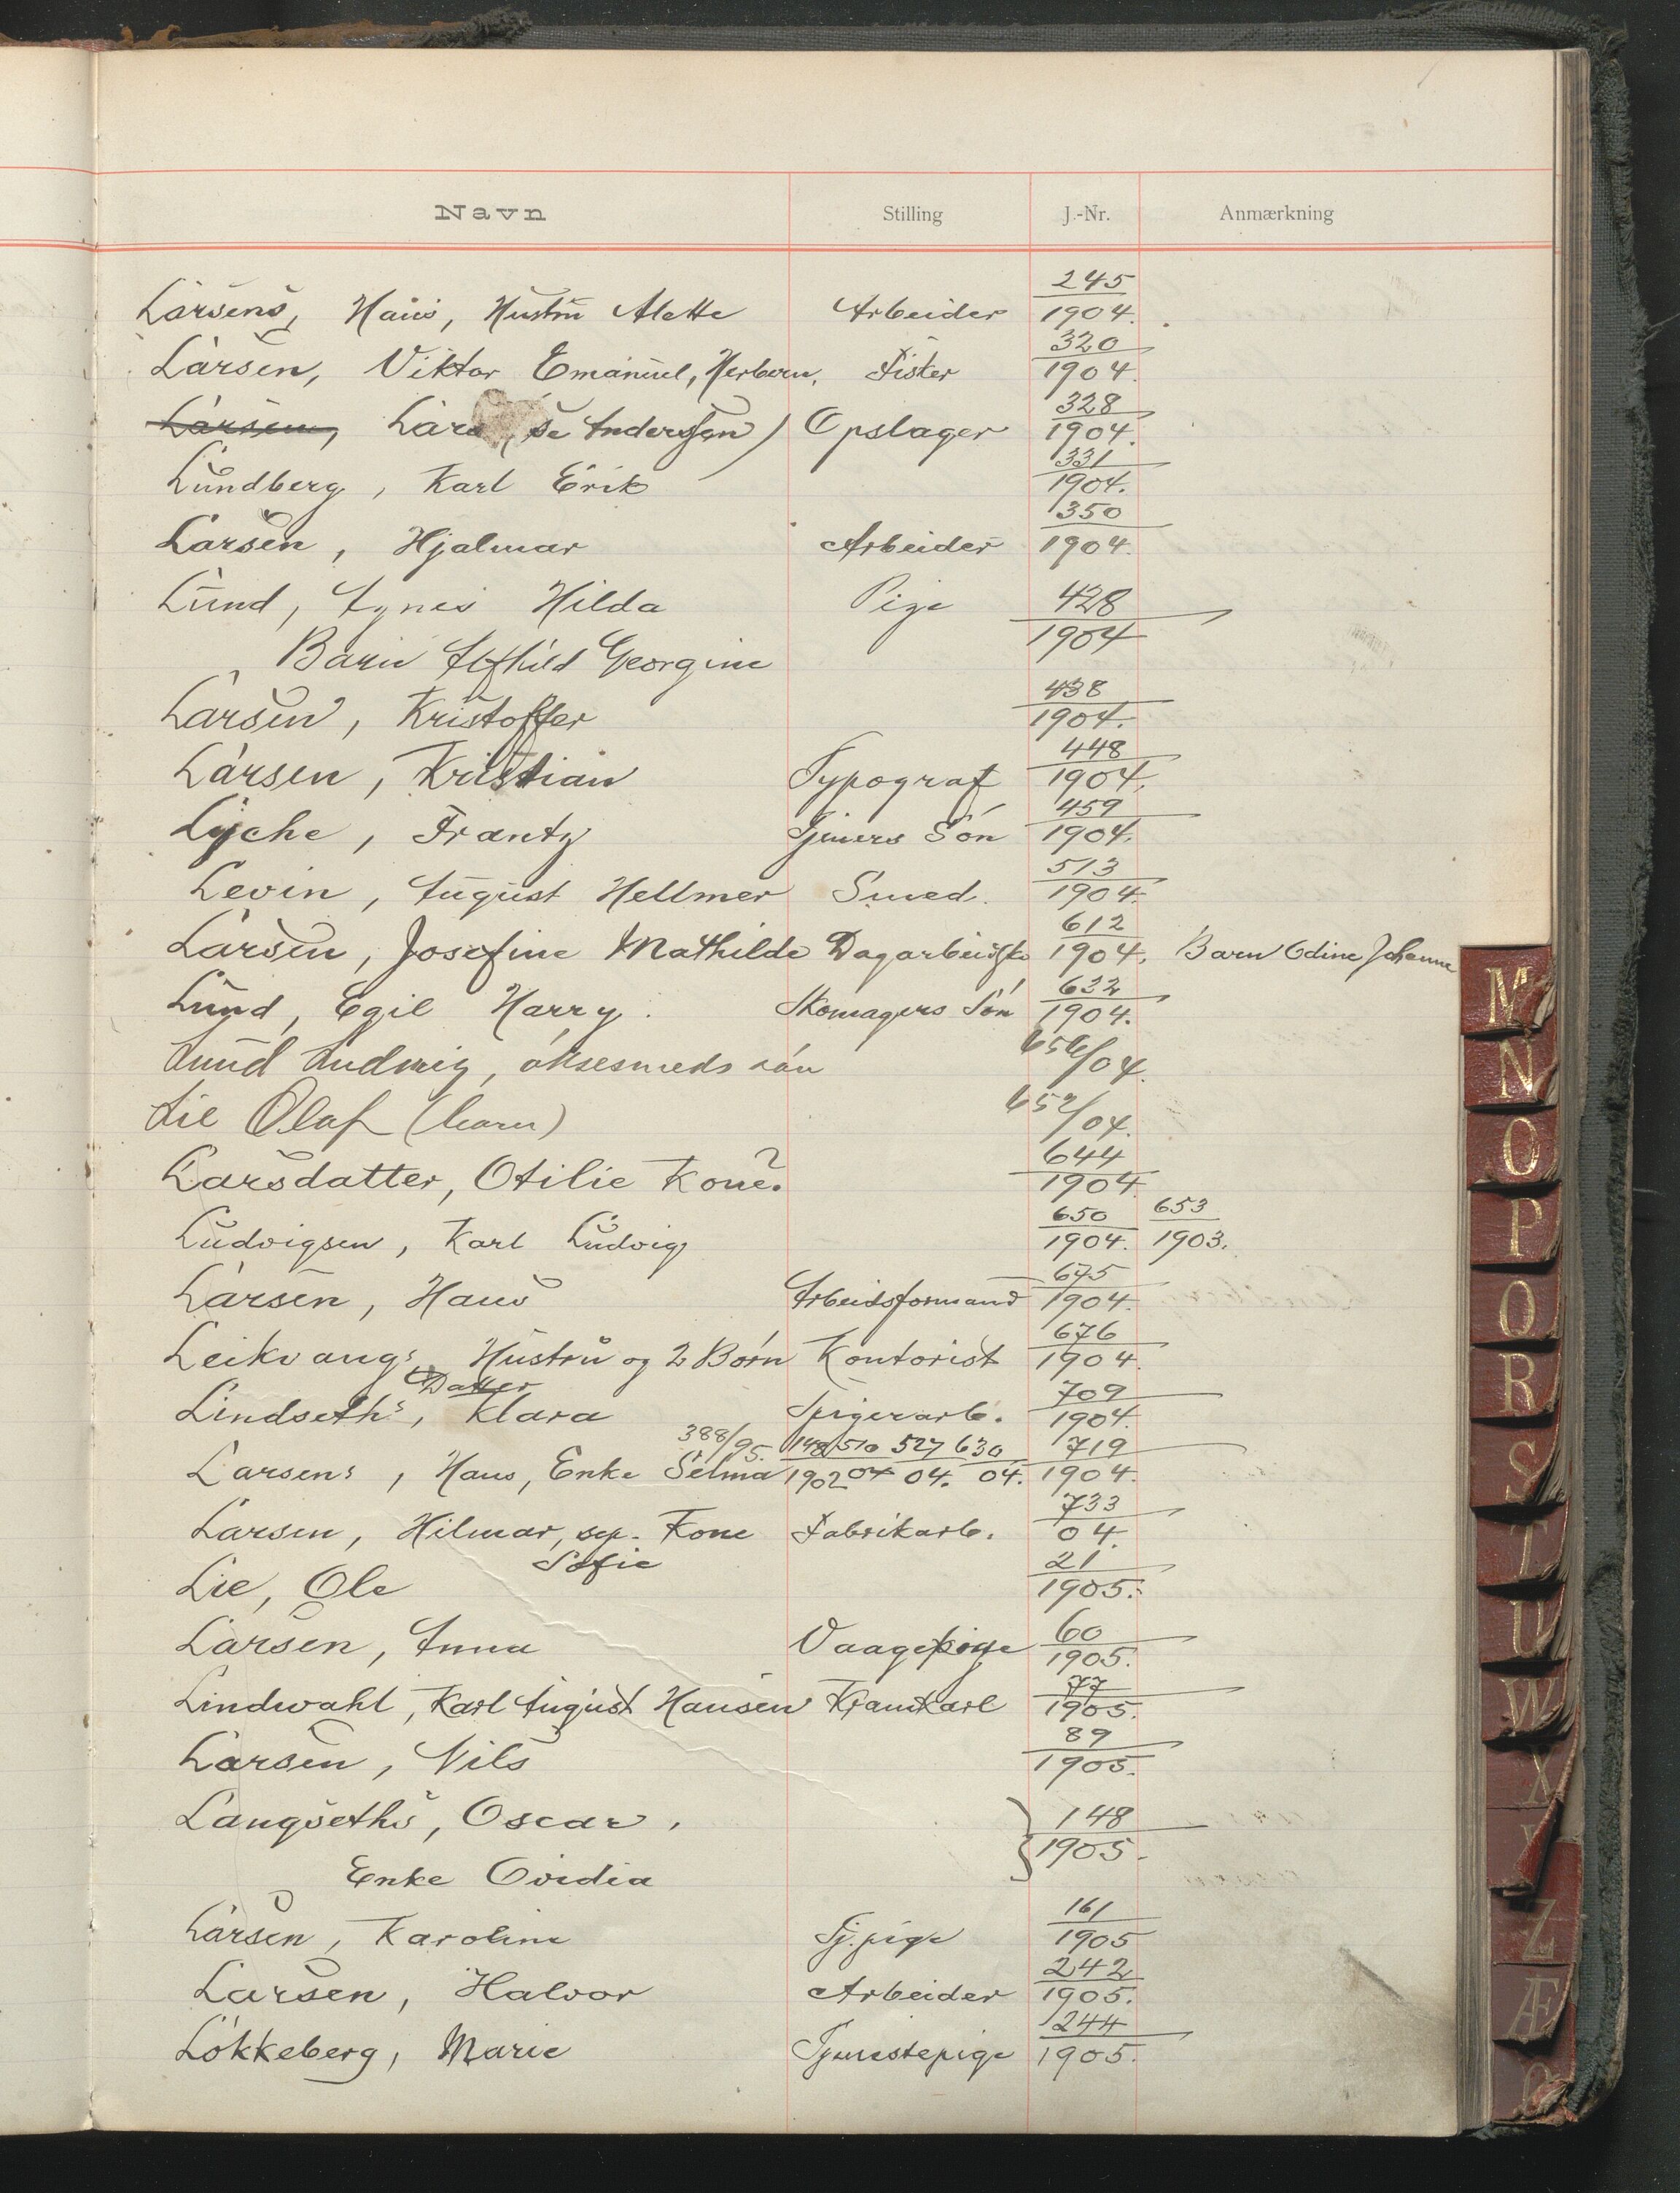 Navn Stilling J.-Nr. Anmærkning
Larsens, Hans, Hustru Alette Arbeider 245/1904.
Larsen, Viktor Emanuel, Herbern. Fisker 320/1904.
Larsen, Lars (se Anderssen) Opslager 328/1904.
Lundberg, Karl Erik 331/1904.
Larsen, Hjalmar Arbeider 350/1904.
Lund, Agnes Hilda Pige 428/1904
Barn Alfhild Georgine
Larsen, Kristoffer 438/1904.
Larsen, Kristian Typograf 448/1904.
Lyche, Frantz Tjeners Sön 459/1904.
Levin, August Hellmer Smed. 513/1904.
Larsen, Josefine Mathilde Dagarbeidske 612/1904. Barn Odine Johanne
Lund, Egil Harry. Skomagers Sön 632/1904.
Lund Ludwig, øksesmeds søn 656/04.
Lie Olaf (barn) 652/04.
Larsdatter, Otilie Kone? 644/1904
Ludvigsen, Karl Ludvig 650/1904. 653/1903.
Larsen, Hans Arbeidsformand 675/1904.
Leikvangs Hustru og 2 Børn Kontorist 676/1904.
Datter
Lindseths, Klara Spigerarb. 709/1904.
388/95. 148/1902 510/04 527/04. 630/04.
Larsens, Hans, Enke Selma 719/1904.
Larsen, Hilmar, sep. Kone Fabrikarb. 733/04.
Sofie
Lie, Ole 21/1905.
Larsen, Anna Vaagepige 60/1905.
Lindwahl, Karl August Hansen Kramkarl 77/1905.
Larsen, Nils 89/1905.
Langseths, Oscar, 148/1905.
Enke Ovidia
Larsen, Karoline Tj.pige 161/1905
Larsen, Halvor Arbeider 242/1905.
Lökkeberg, Marie Tjenestepige 244/1905.
M
N
O
P
Q
R
S
T
U
W
X
Y
Z
Æ
Ø